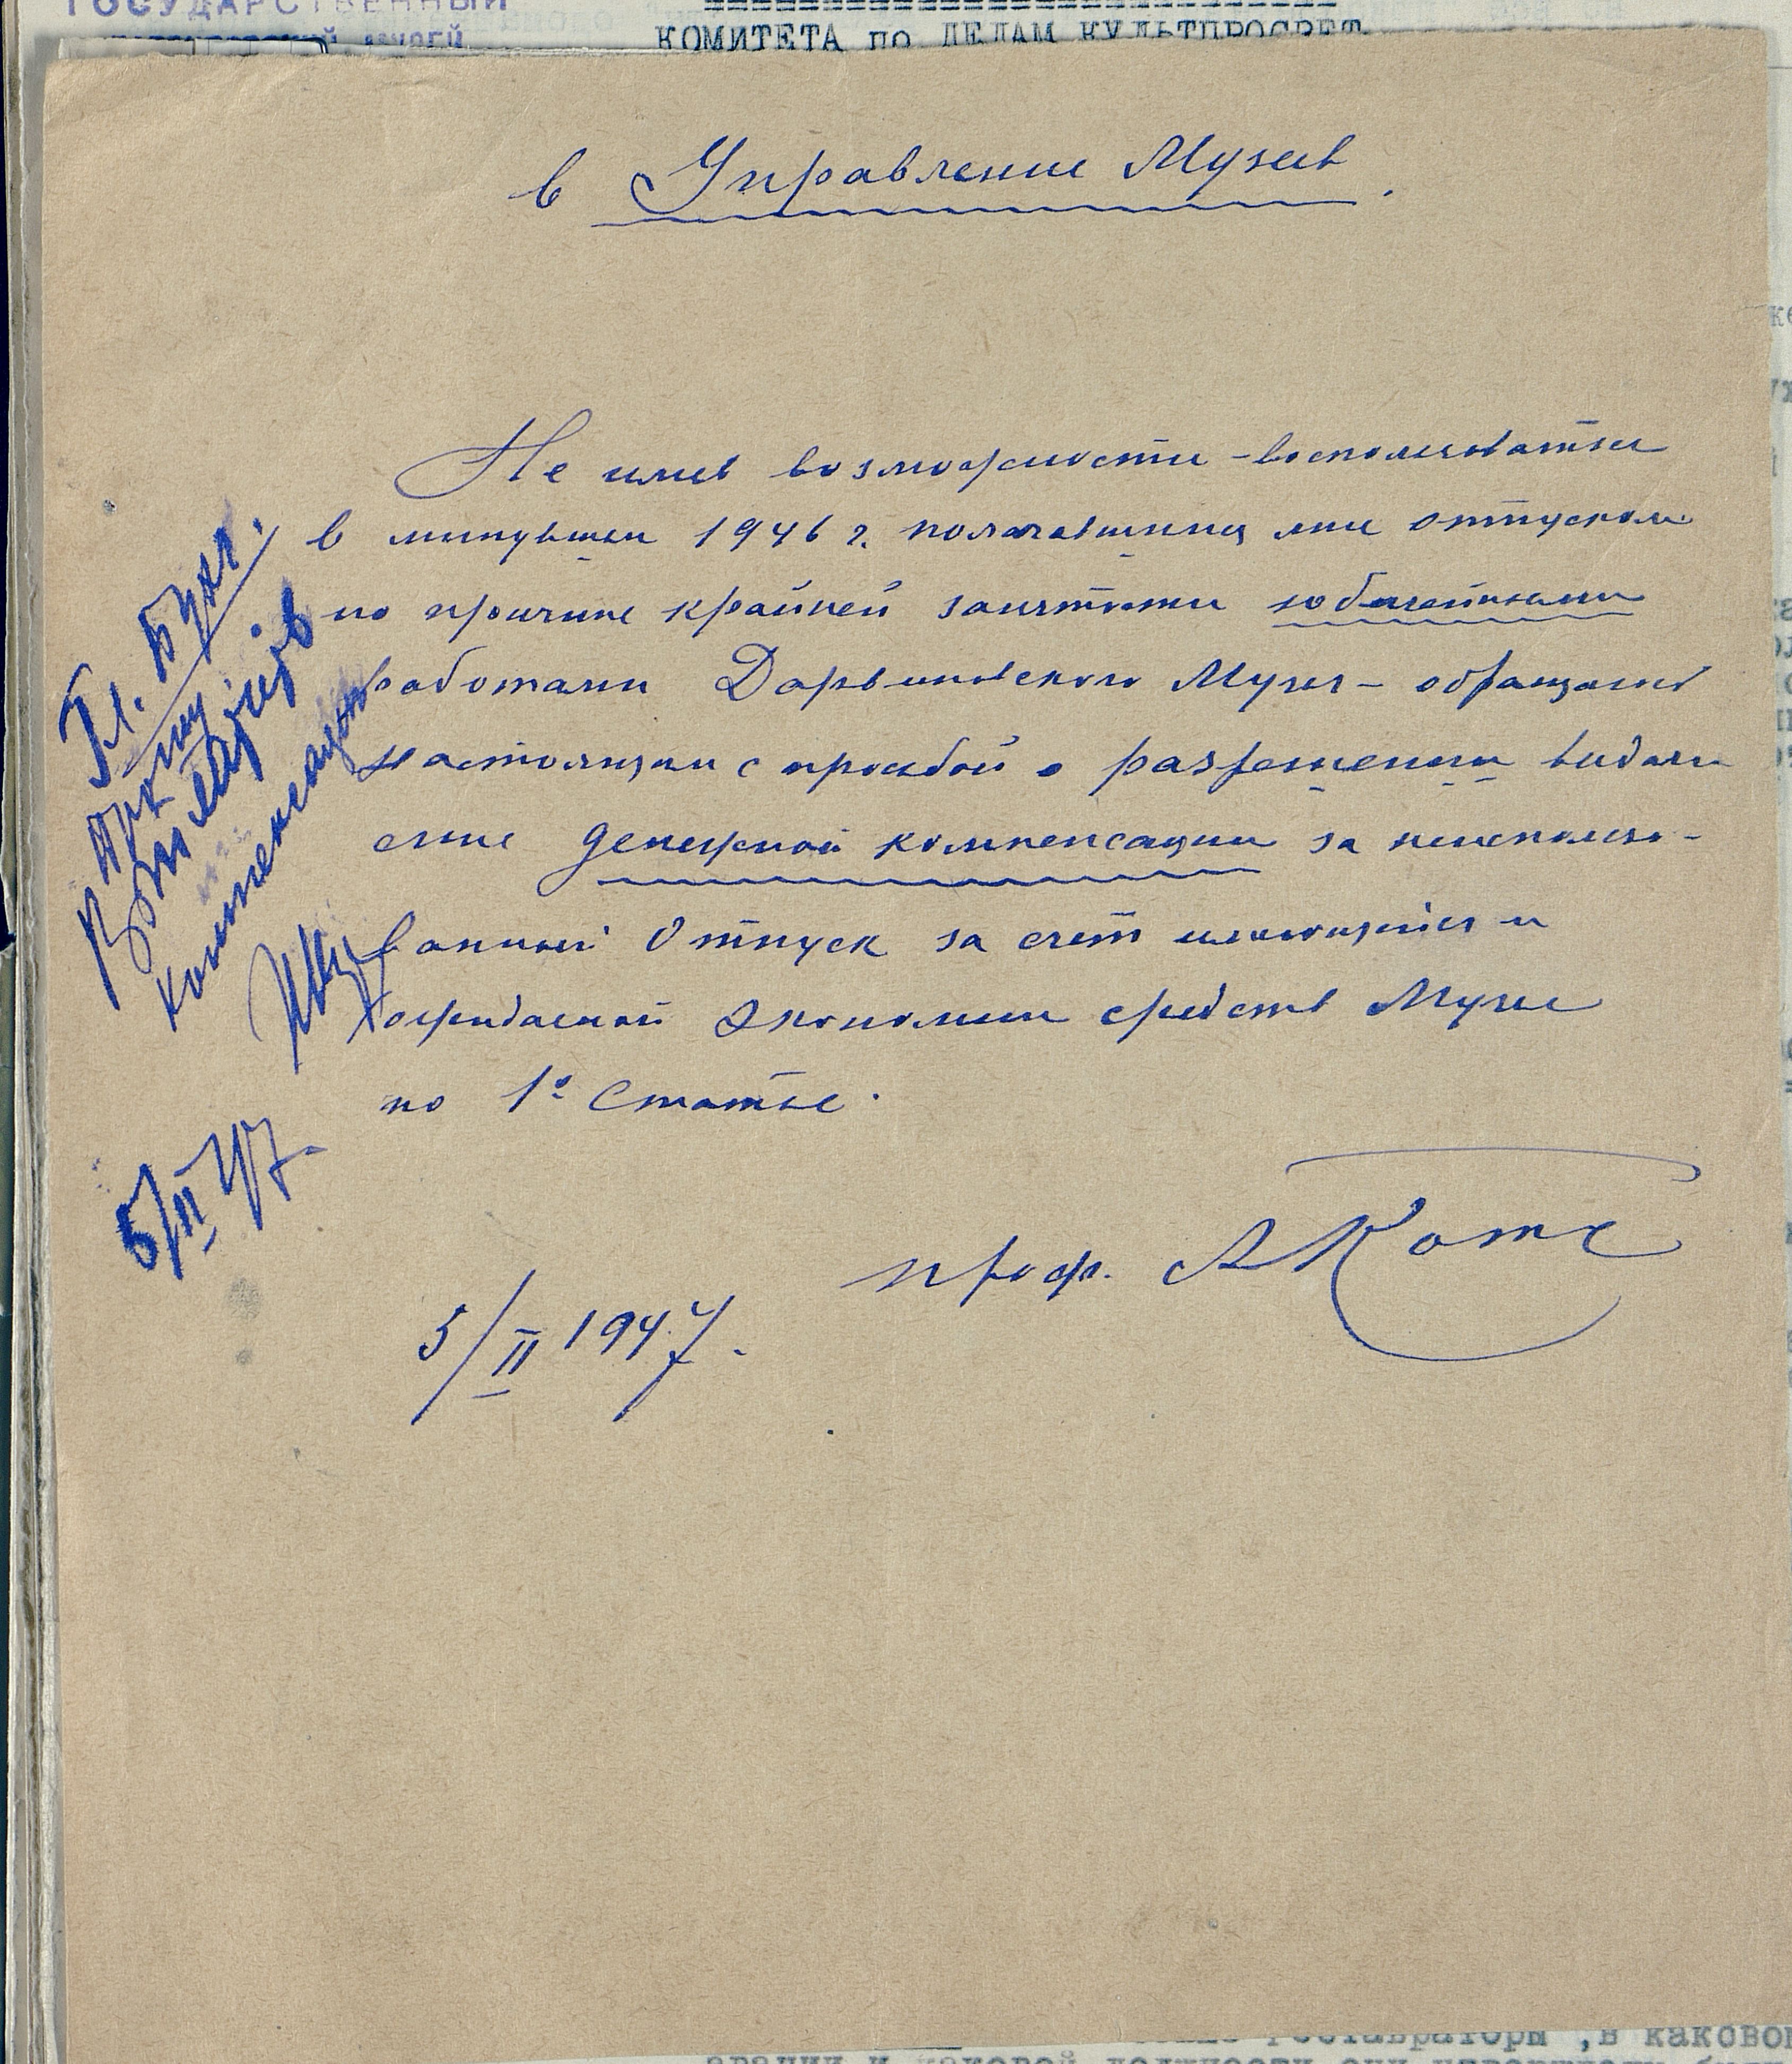 ГОСУДАРСТВЕННЫЙ
КОМИТЕТА по ДЕЛАМ КУЛЬТПРОСВЕТ
в Управление Музеев.
Не имев возможности - воспользоваться
в минувшем 1946 г. полагавшимся мне отпуском
по причине крайней занятости юбилейными
работами Дарвиновского Музея - обращаюсь
настоящим с просьбой о разрешении выдачи
мне денежной компенсации за неиспользо-
ванный отпуск за счет имеющейся и
ожидаемой экономии средств Музея
по 1й Статье.
проф. А Котс
5/II 1947.
Гл. Бухг.
Прошу
компенсацию
5/II 47.
реставраторы, в каковой